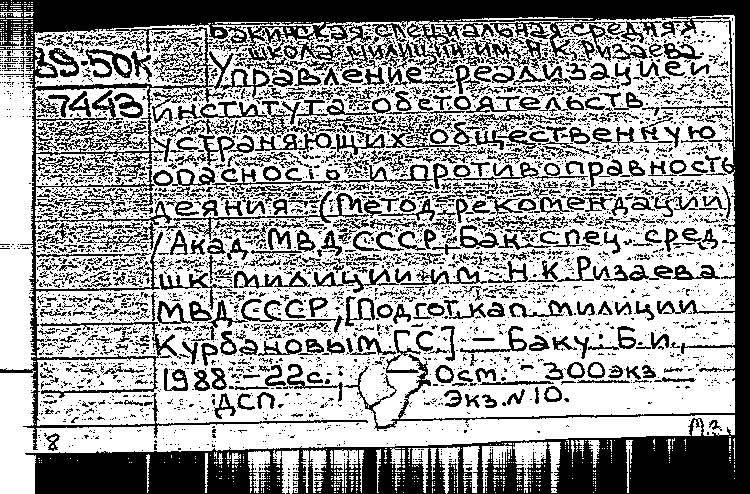 Бакинская специальная средняя
школа милиции им. Н.К. Ризаева
39-50К
Управление реализацией
7443
института обстоятельств,
устраняющих общественную
опасность и противоправность
деяния. (Метод. рекомендации)
/Акад. МВД СССР, Бак. спец. сред.
шк. милиции им. Н.К. Ризаева
МВД СССР, [Подгот. кап. милиции
Курбановым Г.С.] – Баку: Б.и.,
1988. – 22с.; 20см. – 300экз.
ДСП. Экз. N 10.
8